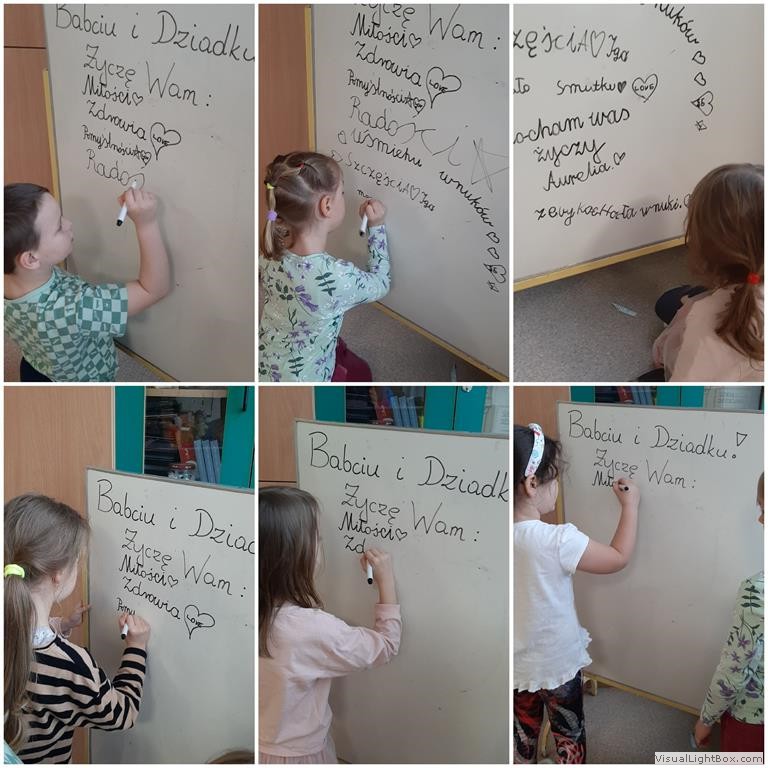 Babciu i Dziadku
Życzę Wam:
Miłości♡
Zdrowia LOVE
Pomyślności
Rado
Życzę Wam:
Miłości♡
Zdrowia LOVE
Pomyślności
Radości
uśmiechu wnuków
SzczęściA♡ Iga
nuków
zęściA♡ Iga
ło smutku♥ LOVE
ocham was
życzy
Aurelia.♡
wnuki.
Babciu i Dziad
Życzę Wam:
Miłości♡
Zdrowia LOVE
Pomy
Babciu i Dziadk
Życzę Wam:
Miłości♡
Zd
Babciu i Dziadku!
Życzę Wam:
Miło
VisualLightBox.com